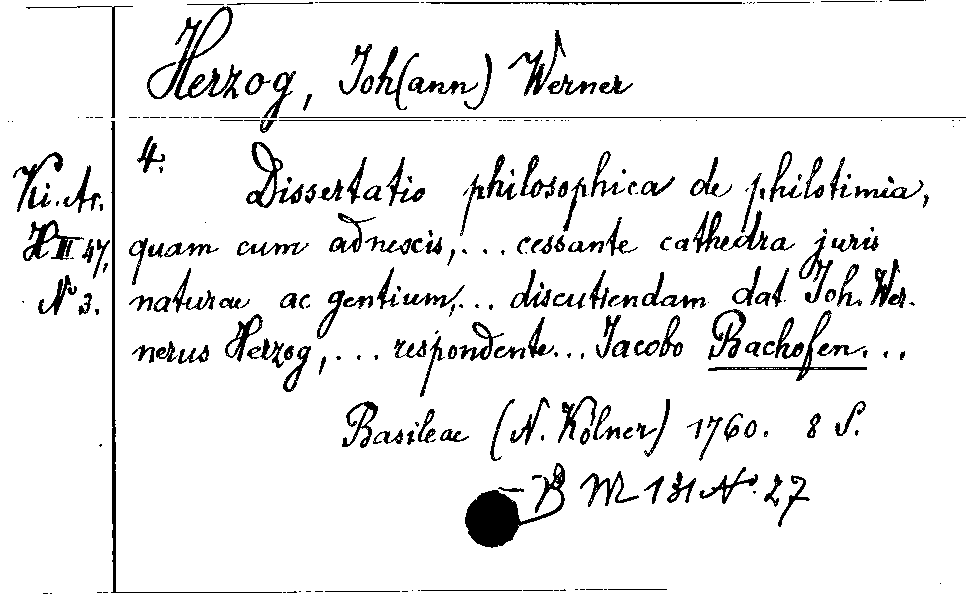 Herzog, Joh(ann) Werner
4.
Ki. Ar.
H III 47,
No 3.
Dissertatio philosophica de philotimia,
quam cum adnexis, ... cessante cathedra juris
naturae ac gentium, ... discutiendam dat Joh. Wer-
nerus Herzog, ... respondente ... Jacobo Bachofen ...
Basileae (N. Kölner) 1760. 8 S.
- B M 131 No. 27